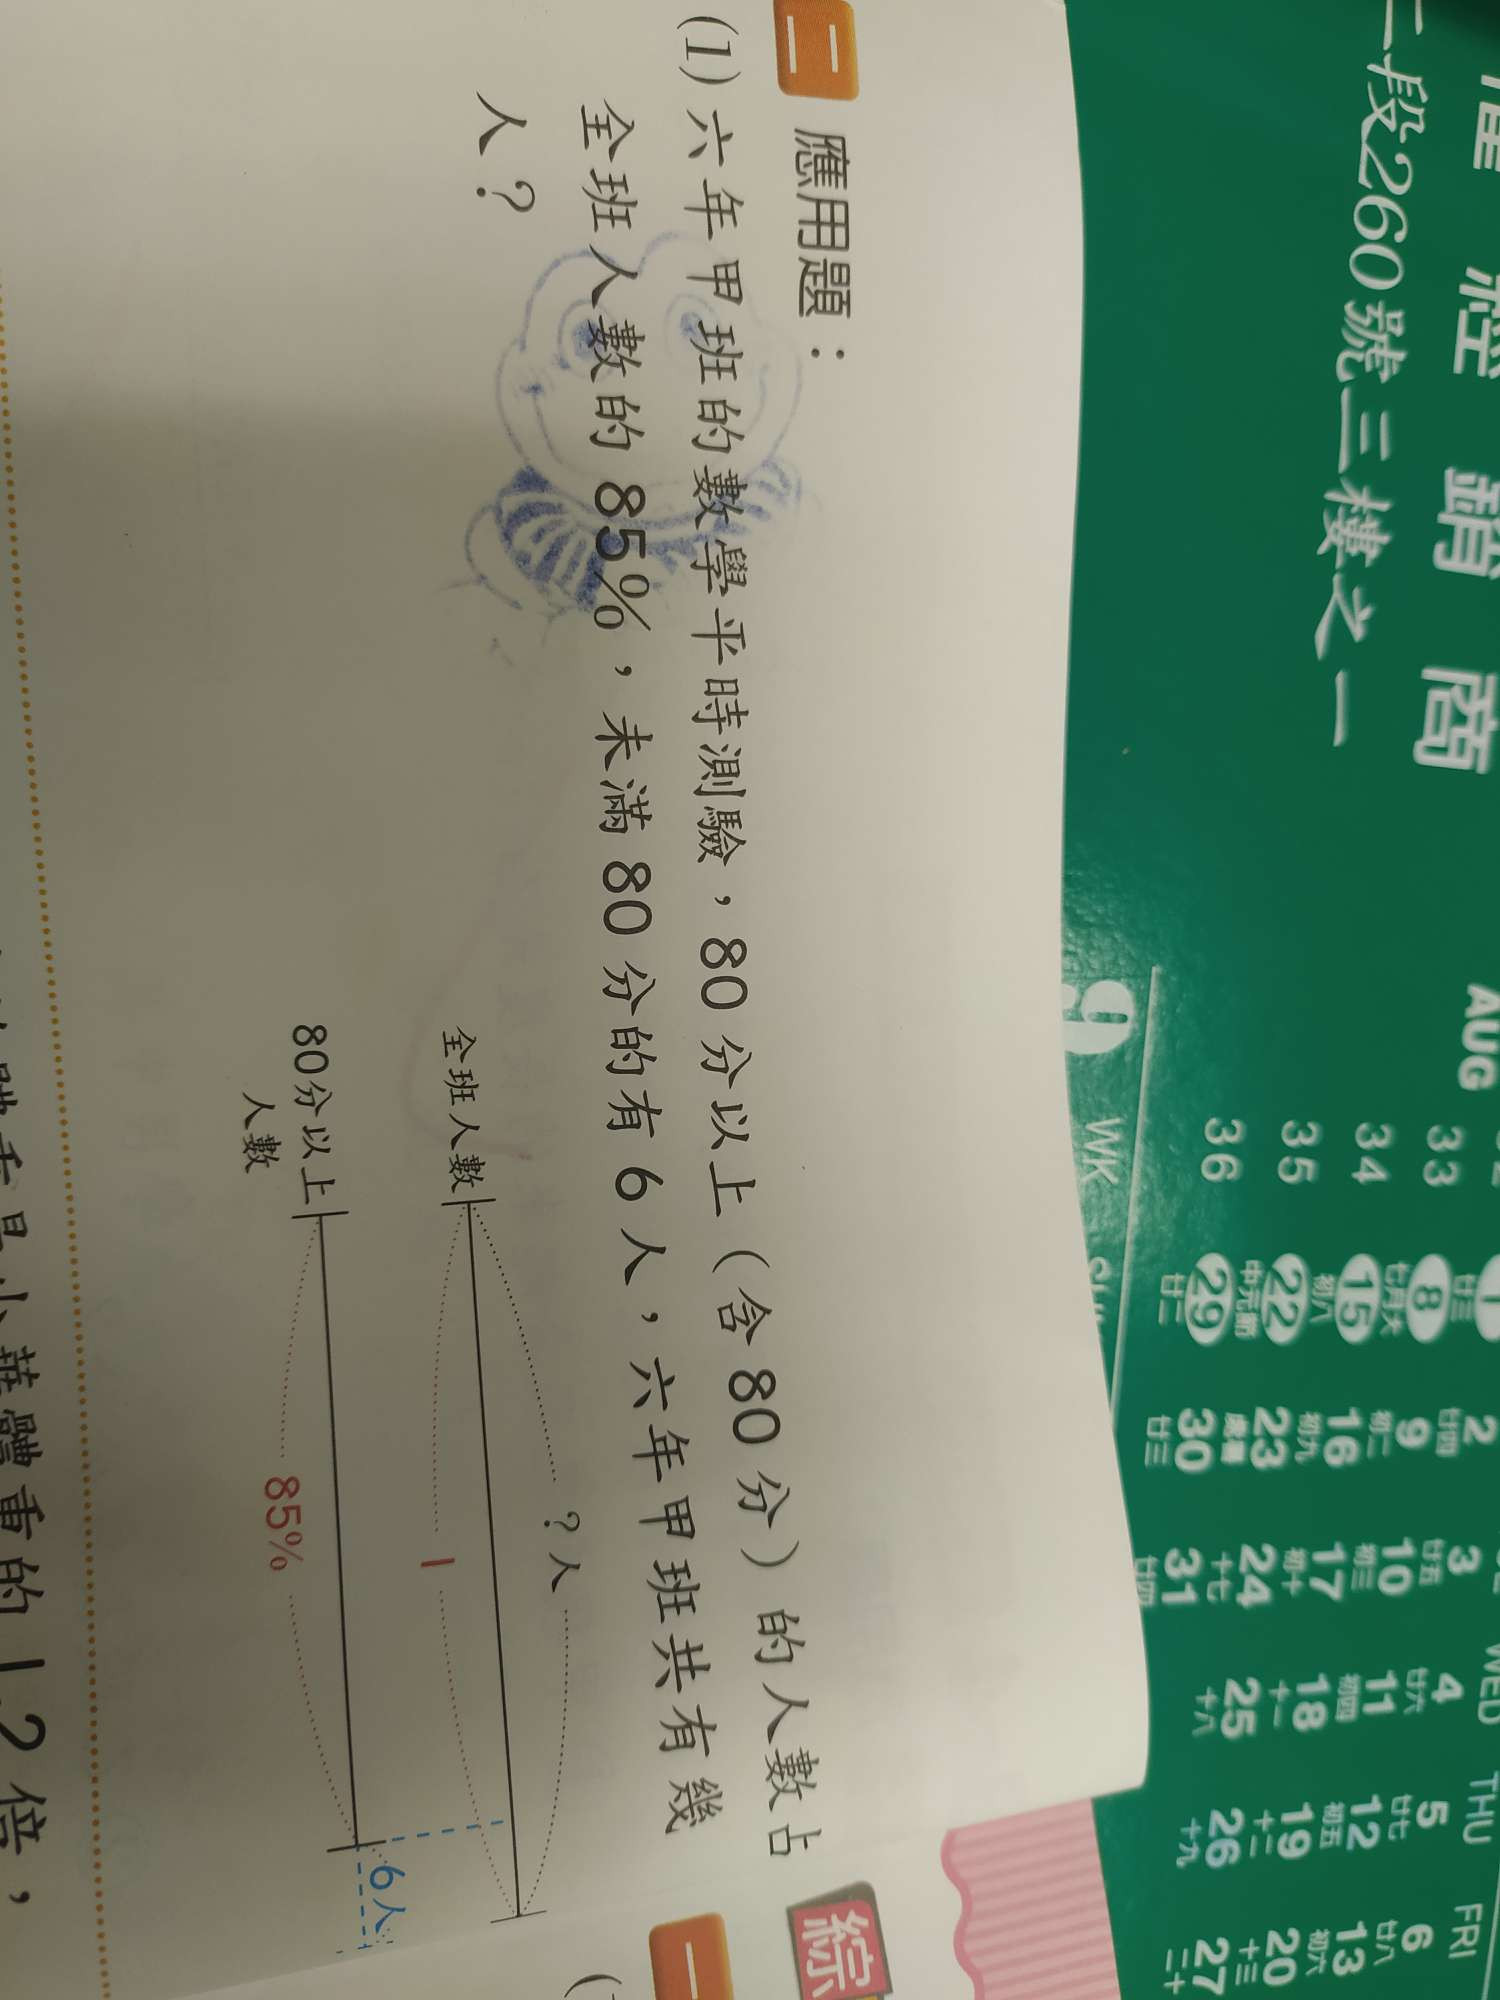 二 應用題：
(1)六年甲班的數學平時測驗，80分以上（含80分）的人數占
全班人數的85%，未滿80分的有6人，六年甲班共有幾
人？
？人
全班人數
1
80分以上
人數
85%
6人
1.2倍，
綜
一
段260號三樓之一
銷商
AUG
WK
WED
THU
FRI
33 8 9 10 11 12 13
34 15 16 17 18 19 20
35 22 23 24 25 26 27
36 29 30 31